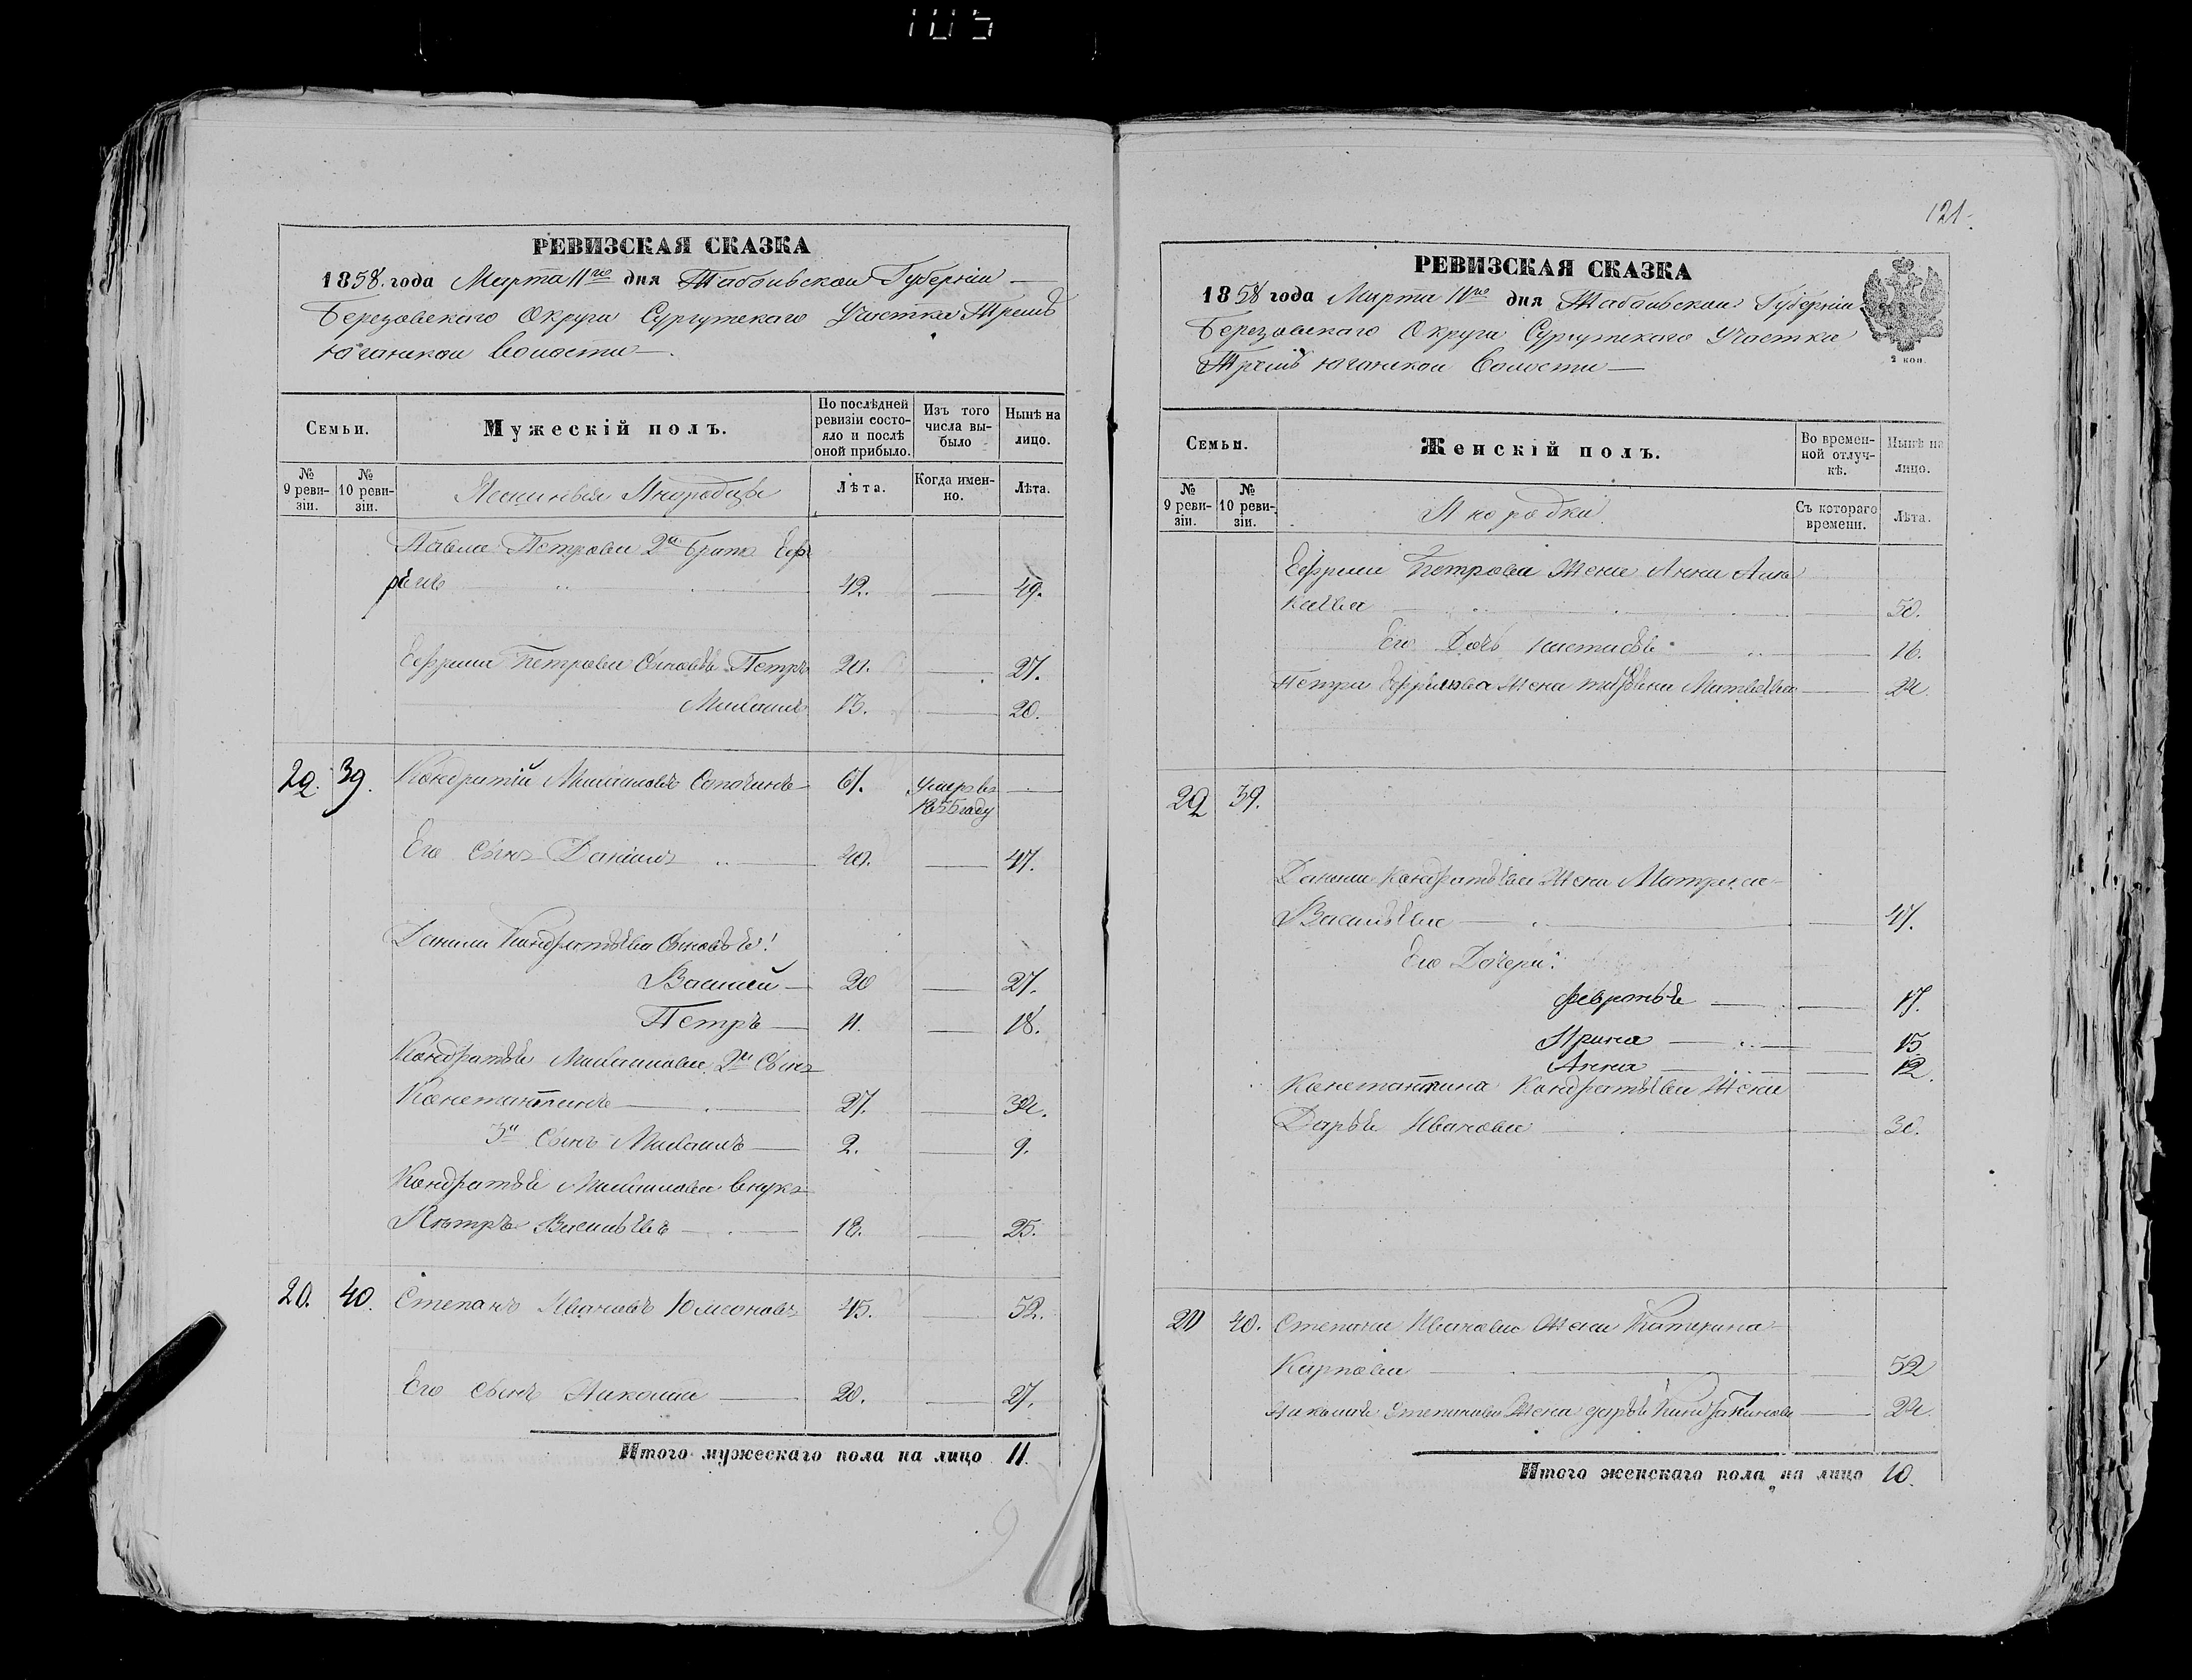 105
РЕВИЗСКАЯ СКАЗКА
1858. года Марта 11го дня Тобольской Губерніи
Березовскаго Округа Сургутскаго Участка Тремъ
Юганской Волости
Семьи.
Мужескій полъ.
По послѣдней ревизіи состо-
яло и послѣ оной прибыло.
Изъ того числа вы-
было
Нынѣ на лицо.
№ 9 реви-
зіи.
№ 10 реви-
зіи.
Ясашные Инородцы
Лѣта.
Когда имен-
но.
Лѣта.
Павла Петрова 2й братъ Ефр
ѣмъ 42. 49.
Ефрема Петрова Сыновья Петръ 20. 27.
Михаилъ 13. 20.
29. 39. Кондратій Михайловъ 61. Умеръ въ
1855 году
Его сынъ Данилъ 40. 47.
Данилы Кондратьева Сыновья:
Василей 20 27.
Петръ 11. 18.
Кондратья Михайлова 2й Сынъ
Константинъ 27. 34.
3й Сынъ Михаилъ 2. 9.
Кондратья Михайлова внукъ
Петръ Васильевъ 18. 25.
20. 40. Степанъ Ивановъ 45. 52.
Его сынъ Николай 20. 27.
Итого мужескаго пола на лицо 11.
121.
РЕВИЗСКАЯ СКАЗКА
1858 года Марта 11го дня Тобольской Губерніи
Березовскаго Округа Сургутскаго Участка
Тремъ Юганской Волости
2 коп.
Семьи.
Женскій полъ.
Во времен-
ной отлуч-
кѣ.
Нынѣ на лицо.
№ 9 реви-
зіи.
№ 10 реви-
зіи.
Инородки
Съ котораго времени.
Лѣта.
Ефрема Петрова Жена Анна
50.
Его Дочь Настасья 16.
Петра Ефремова Жена Матвѣева 24.
29 39.
Данилы Кондратьева Жена Матрена
Васильева 47.
Его Дочери:
Февронья 17.
Ирина 15.
Анна 12.
Константина Кондратьева Жена
Дарья Иванова 30.
20 40. Степана Иванова Жена Катерина
Карпова 52
Николая Степанова Жена 24.
Итого женскаго пола на лицо 10.